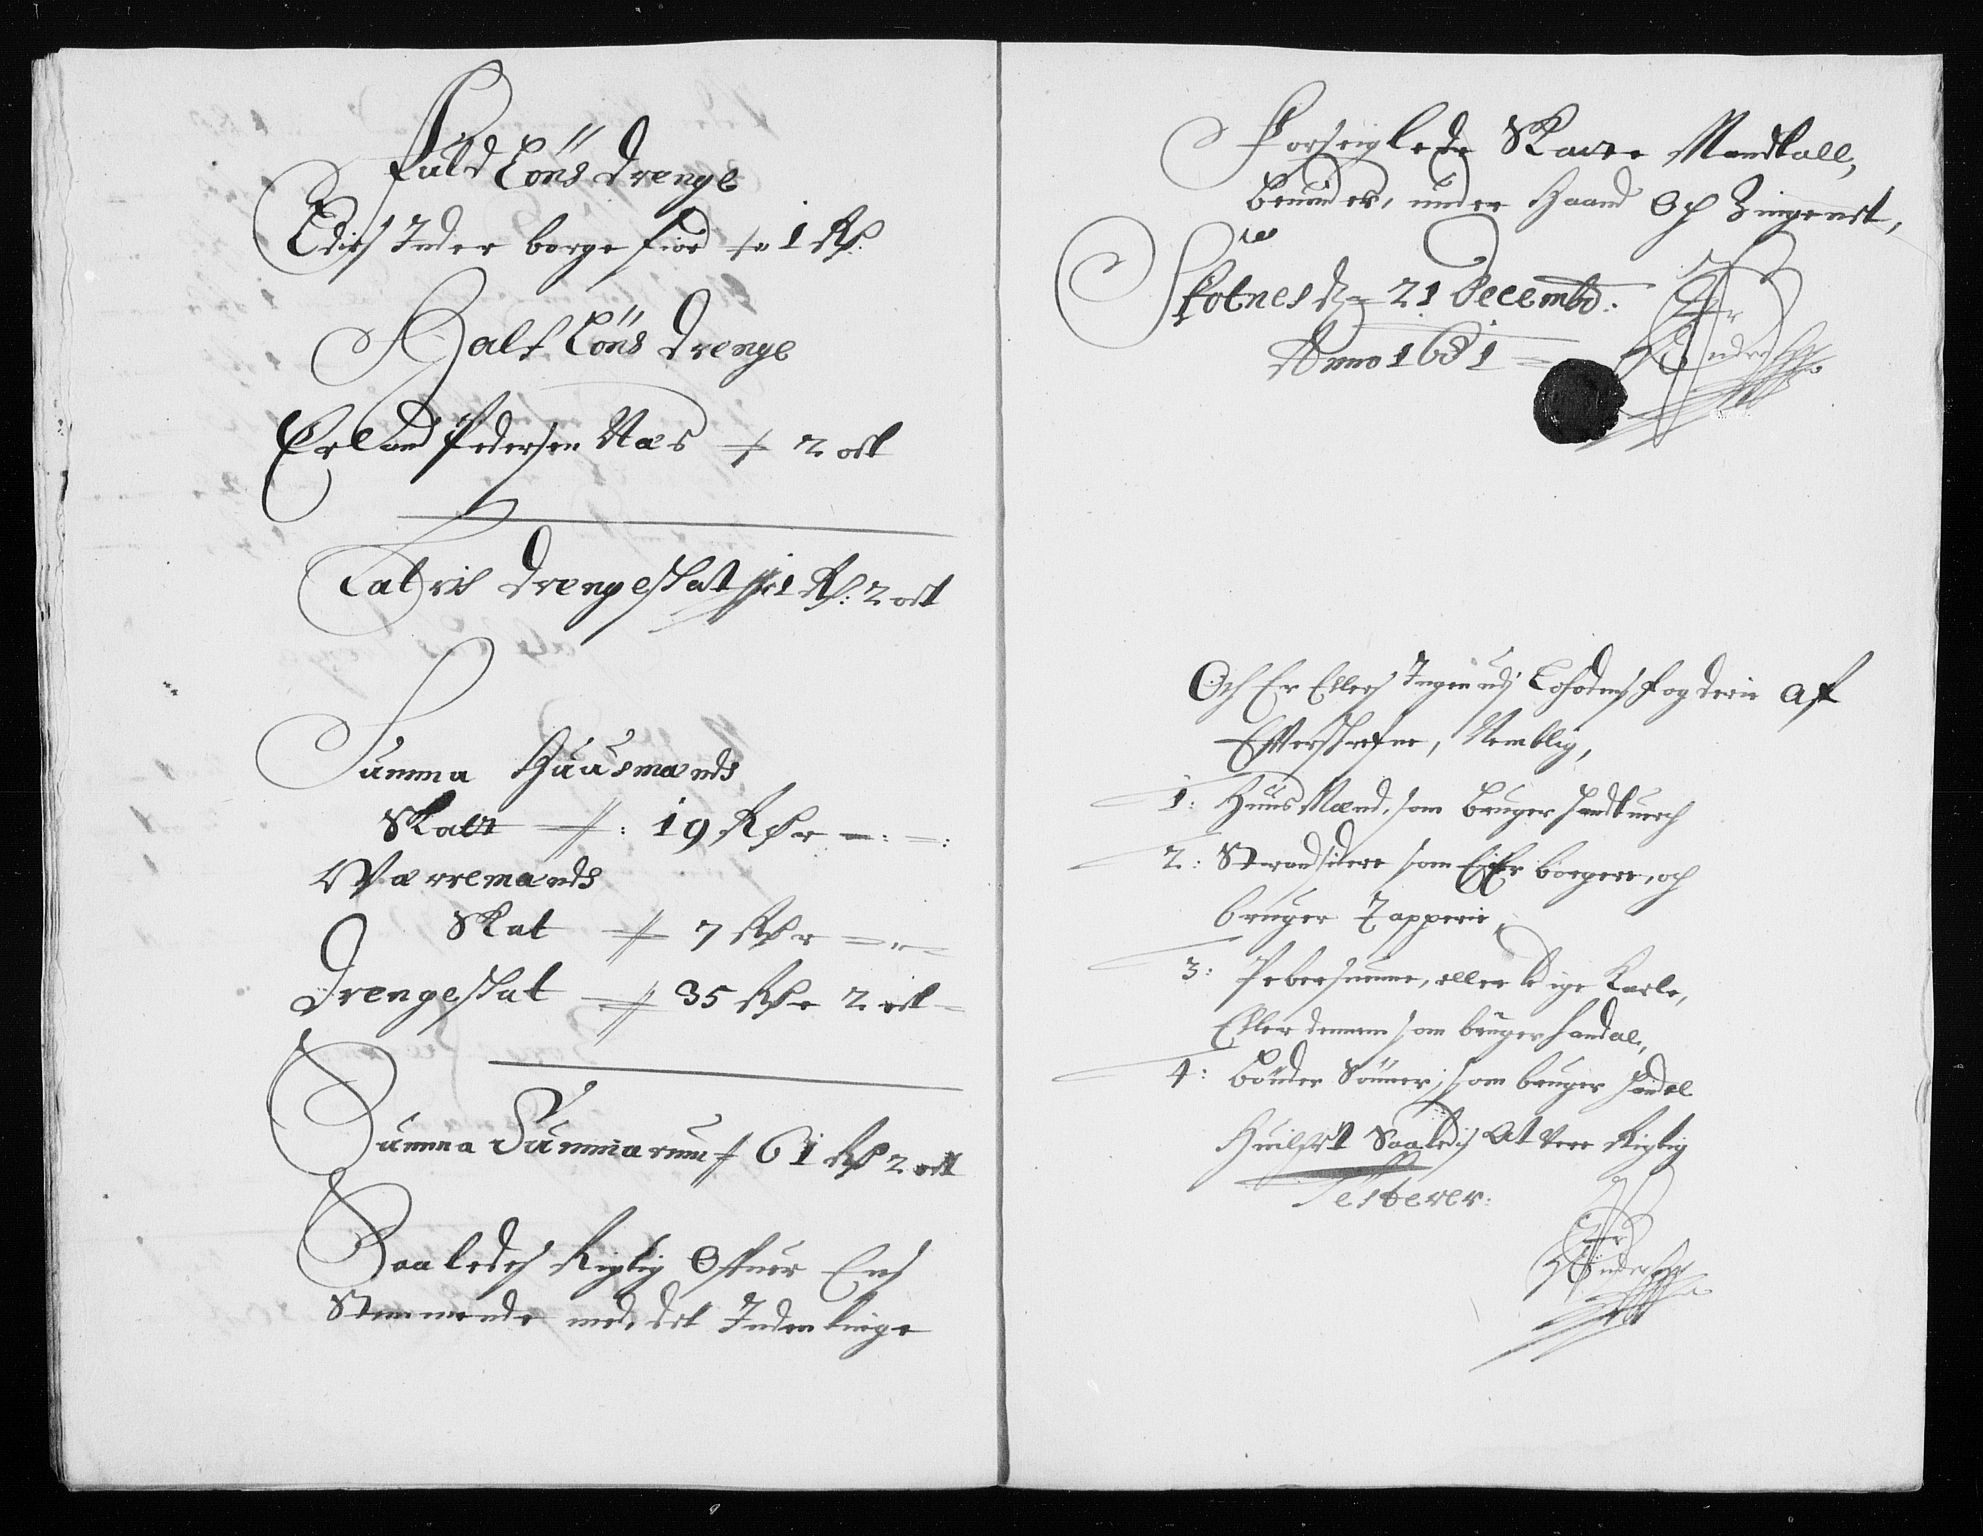 Fuld Löns Drenge
Inder borge fiord 1 Rß
Half Löns Drenge
Erland Pedersen Næs 2 ort
Latris Drengeskat 1 Rß: 2 ort
Summa Huusmands
Skatt : 19 Rdr
Værremands
Skat 7 Rdr
Drengeskat 35 Rdr 2 ort
Summa Summarum 61 Rd 2 ort
Saaledes Rigtig Ofuer Ens
Stemmende med det Indenlinge
Forseiglede Skatte Mandtall,
under Haand Og Zingenet,
d. 21 Decembr:
Anno 1681
Och Er Ellers Ingen udj Lofodens fogderie Af
Efterskrefne, Nemblig,
1: Huus Mænd, som Bruger handtverch
2: Strandsidere som Er borgere, och
bruger Tapperie,
3: Pebersuenne, eller ledige Karle,
Eller dennem som bruger handel,
4: bönder Sönner, som bruger handel
Huilchet Saaledis At vere Rigtig
Testerer: